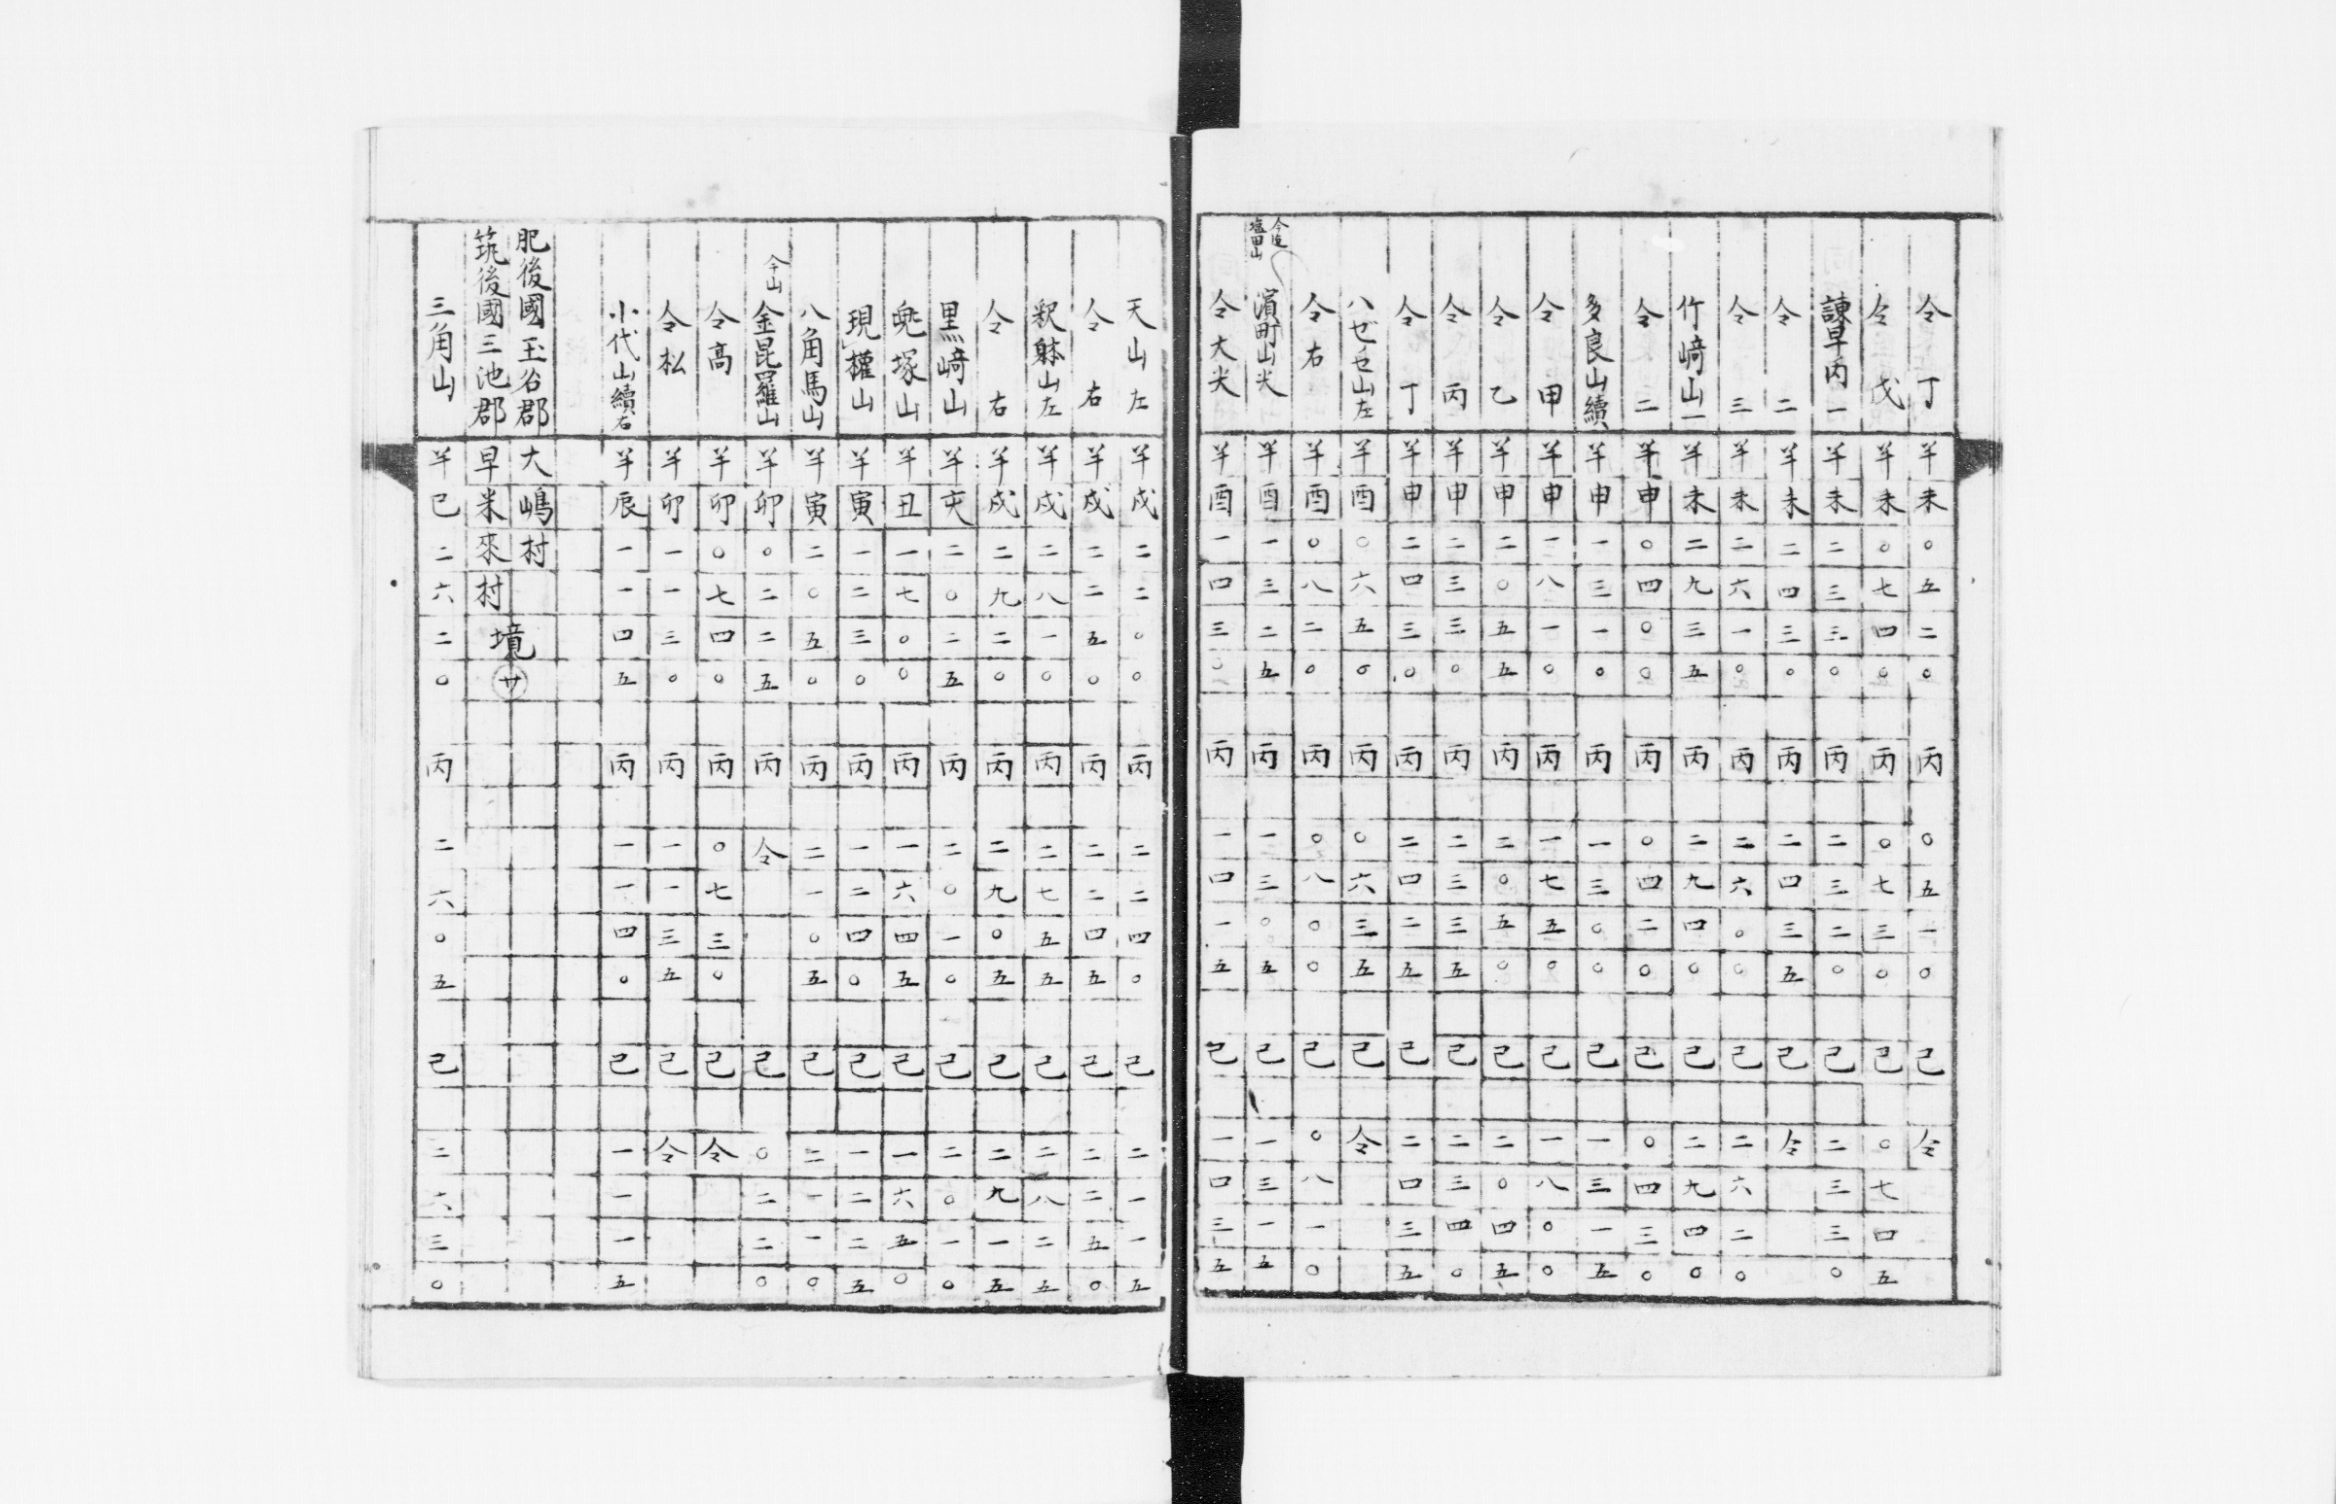 仝丁半未〇五二〇丙〇五一〇己仝
仝戊半未〇七四〇丙〇七三〇己〇七四五
諫早丙一半未二三三〇丙二三二〇己二三三〇
仝二半未二四三〇丙二四三五己仝
仝三半未二六一〇丙二六〇〇己二六二〇
竹﨑山一半未二九三五丙二九四〇己二九四〇
仝二半申〇四〇〇丙〇四二〇己〇四三〇
多良山續半申一三一〇丙一三〇〇己一三一五
仝甲半申一八一〇丙一七五〇己一八〇〇
仝乙半申二〇五五丙二〇五〇己二〇四五
仝丙半申二三三〇丙二三三五己二三四〇
仝丁半申二四三〇丙二四二五己二四三五
山左半酉〇六五〇丙〇六三五己仝
仝右半酉〇八二〇丙〇八〇〇己〇八一〇
塩田山
濱町山尖半酉一三二五丙一三〇五己一三一五
仝大尖半酉一四三〇丙一四一五己一四三五
天山左半戌二二〇〇丙二二四〇己二一一五
仝右半戌二二五〇丙二二四五己二二五〇
釈躰山左半戌二八一〇丙二七五五己二八二五
仝右半戌二九二〇丙二九〇五己二九一五
黒﨑山半亥二〇二五丙二〇一〇己二〇一〇
兜塚山半丑一七〇〇丙一六四五己一六五〇
現權山半寅一二三〇丙一二四〇己一二二五
八角馬山半寅二〇五〇丙二一〇五己二一一〇
仝山
金昆羅山半卯〇二二五丙仝己〇二二〇
仝高半卯〇七四〇丙〇七三〇己仝
仝松半卯一一三〇丙一一三五己仝
小代山續右半辰一一四五丙一一四〇己一一一五
肥後國玉名郡大嶋村
筑後國三池郡早米來村
境
廿
三角山半巳二六二〇丙二六〇五己二六三〇